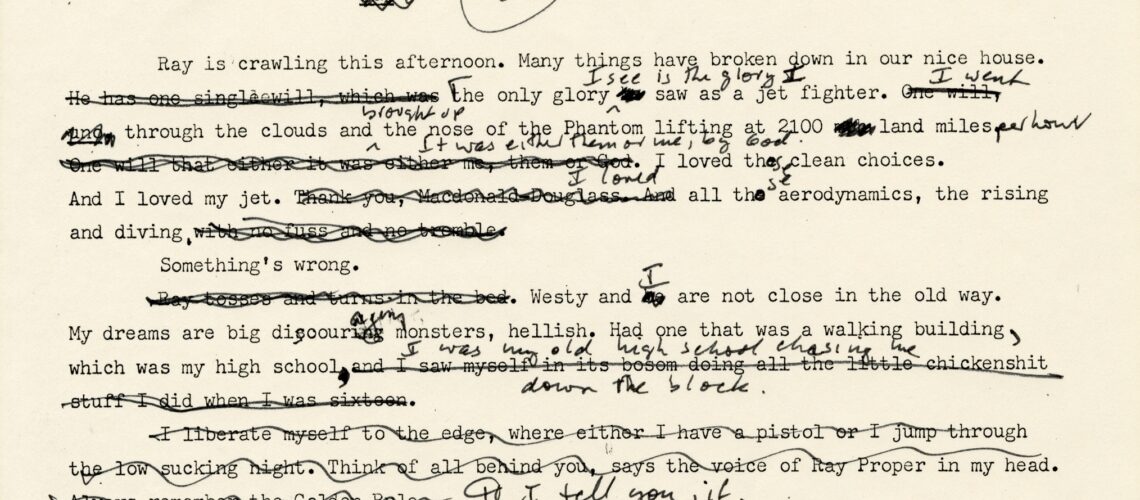 Ray is crawling this afternoon. Many things have broken down in our nice house.
I see is the glory I
I went
He has one single will, which was The only glory saw as a jet fighter. One will,
brought up
through the clouds and the nose of the Phantom lifting at 2100 land miles per hour
It was either them or me, by God.
One will that either it was either me, them or God. I loved these clean choices.
I loved
And I loved my jet. Thank you, Macdonald-Douglass. And all those aerodynamics, the rising
and diving, with no fuss and no tromble.
Something's wrong.
I
Ray tosses and turns in the bed. Westy and are not close in the old way.
My dreams are big discouraging monsters, hellish. Had one that was a walking building,
I was my old high school chasing me
which was my high school, and I saw myself in its bosom doing all the little chickenshit
down the block.
stuff I did when I was sixteen.
I liberate myself to the edge, where either I have a pistol or I jump through
the low sucking night. Think of all behind you, says the voice of Ray Proper in my head.
Always remember the Golden Rule
I tell you it.